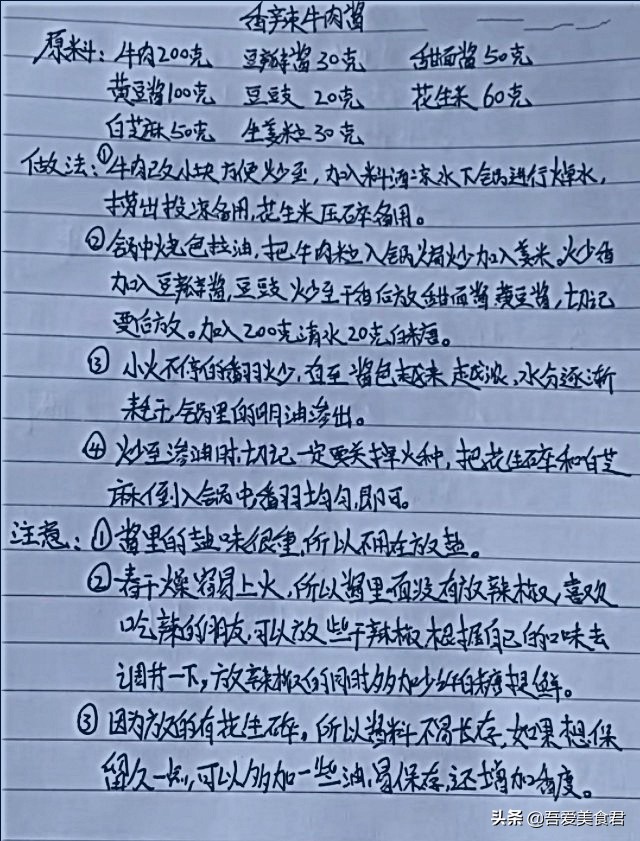 香辣牛肉酱
原料: 牛肉200克 豆瓣酱30克 甜面酱50克
黄豆酱100克 豆豉 20克 花生米 60克
白芝麻50克 生姜粒30克
做法:①牛肉改小块方便炒至,加入料酒凉水下锅进行焯水,
捞出投凉备用,花生米压碎备用。
②锅中烧色拉油,把牛肉粒入锅煸炒加入姜米。炒香
加入豆瓣酱,豆豉 炒至干香后放甜面酱黄豆酱,切记
要后放。加入200克清水20克白糖。
③ 小火不停的翻炒,直至酱色越来越浓,水分逐渐
耗干锅里的明油渗出。
④ 炒至渗油时切记一定要关掉火种,把花生碎和白芝
麻倒入锅中番羽均匀,即可。
注意:①酱里的盐味很重,所以不用在放盐。
②春干燥容易上火,所以酱里面没有放辣椒,喜欢
吃辣的朋友,可以放些干辣椒根据自己的口味去
调节一下,放辣椒的同时多加少许白糖提鲜。
③ 因为放的有花生碎,所以酱料不易长存,如果想保
留久一点,可以多加一些油,易保存,还增加香度。
头条 @吾爱美食君